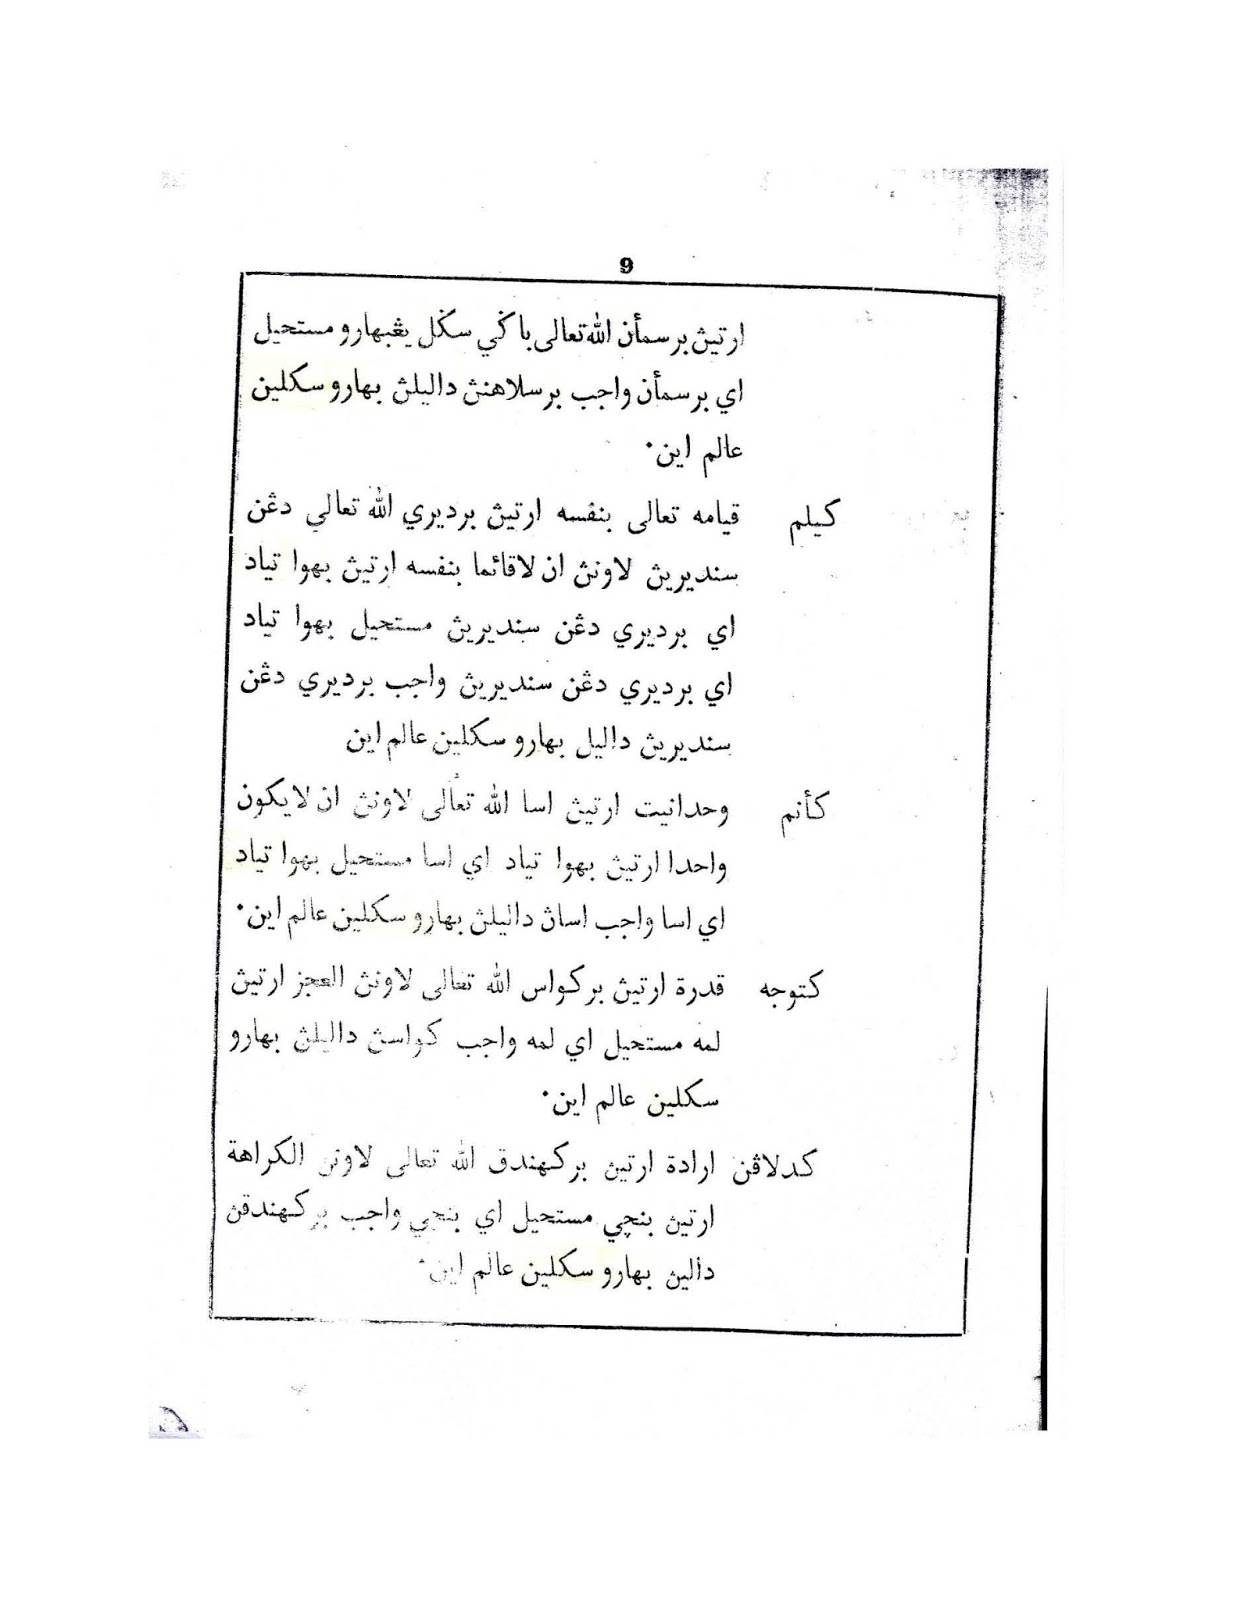 9
ارتيڽ برسمأن الله تعالى باݢي سݢل يڠبهارو مستحيل
اي برسمأن واجب برسلاهنڽ داليلڽ بهارو سكلين
عالم اين٠
كليم قيامه تعالى بنفسه ارتيڽ برديري الله تعالي دڠن
سنديريڽ لاونڽ ان لاقائما بنفسه ارتيڽ بهوا تياد
اي برديري دڠن سنديريڽ مستحيل بهوا تياد
اي برديري دڠن سنديريڽ واجب برديري دڠن
سنديريڽ داليل بهارو سكلين عالم اين
كأنم وحدانيت ارتيڽ اسا الله تعالى لاونڽ ان لايكون
واحدا ارتيڽ بهوا تياد اي اسا مستحيل بهوا تياد
اي اسا واجب اساڽ داليلڽ بهارو سكلين عالم اين٠
كتوجه قدرة ارتيڽ بركواس الله تعالى لاونڽ العجز ارتيڽ
لمه مستحيل اي لمه واجب كواسڽ داليلڽ بهارو
سكلين عالم اين٠
كدلاڤن ارادة ارتين بركهندق الله تعالى لاونن الكراهة
ارتين بنچي مستحيل اي بنچي واجب بركهندقن
دالين بهارو سكلين عالم اين٠